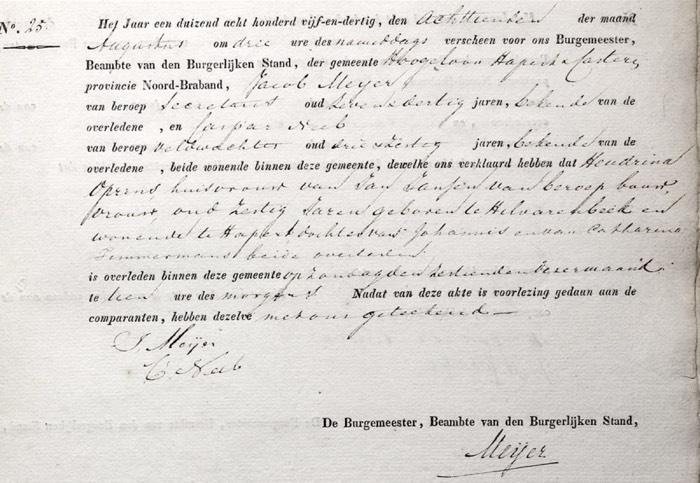 No. 25.
Het Jaar een duizend acht honderd vijf-en-dertig, den Achttienden der maand
Augustus om drie ure des namiddags verscheen voor ons Burgemeester,
Beambte van den Burgerlijken Stand, der gemeente Hoogeloon Hapert & Casteren
provincie Noord-Braband, Jacob Meyer,
van beroep Secretaris oud zevenendertig jaren, bekende van de
overledene , en Caspar Neeb
van beroep Veldwachter oud drie & zestig jaren, bekende van de
overledene , beide wonende binnen deze gemeente, dewelke ons verklaard hebben dat Hendrina
Oprens huisvrouw van Jan Jansen van beroep bouw
vrouw, oud zestig Jaren geboren te Hilvarenbeek en
wonende te Hapert dochter van Johannis en van Catharina
Timmermans beide overleden
is overleden binnen deze gemeente op Zondag den zestienden dezer maand
te tien ure des morgens Nadat van deze akte is voorlezing gedaan aan de
comparanten, hebben dezelve met ons geteekend
J. Meijer
C. Neeb
De Burgemeester, Beambte van den Burgerlijken Stand,
Meijer